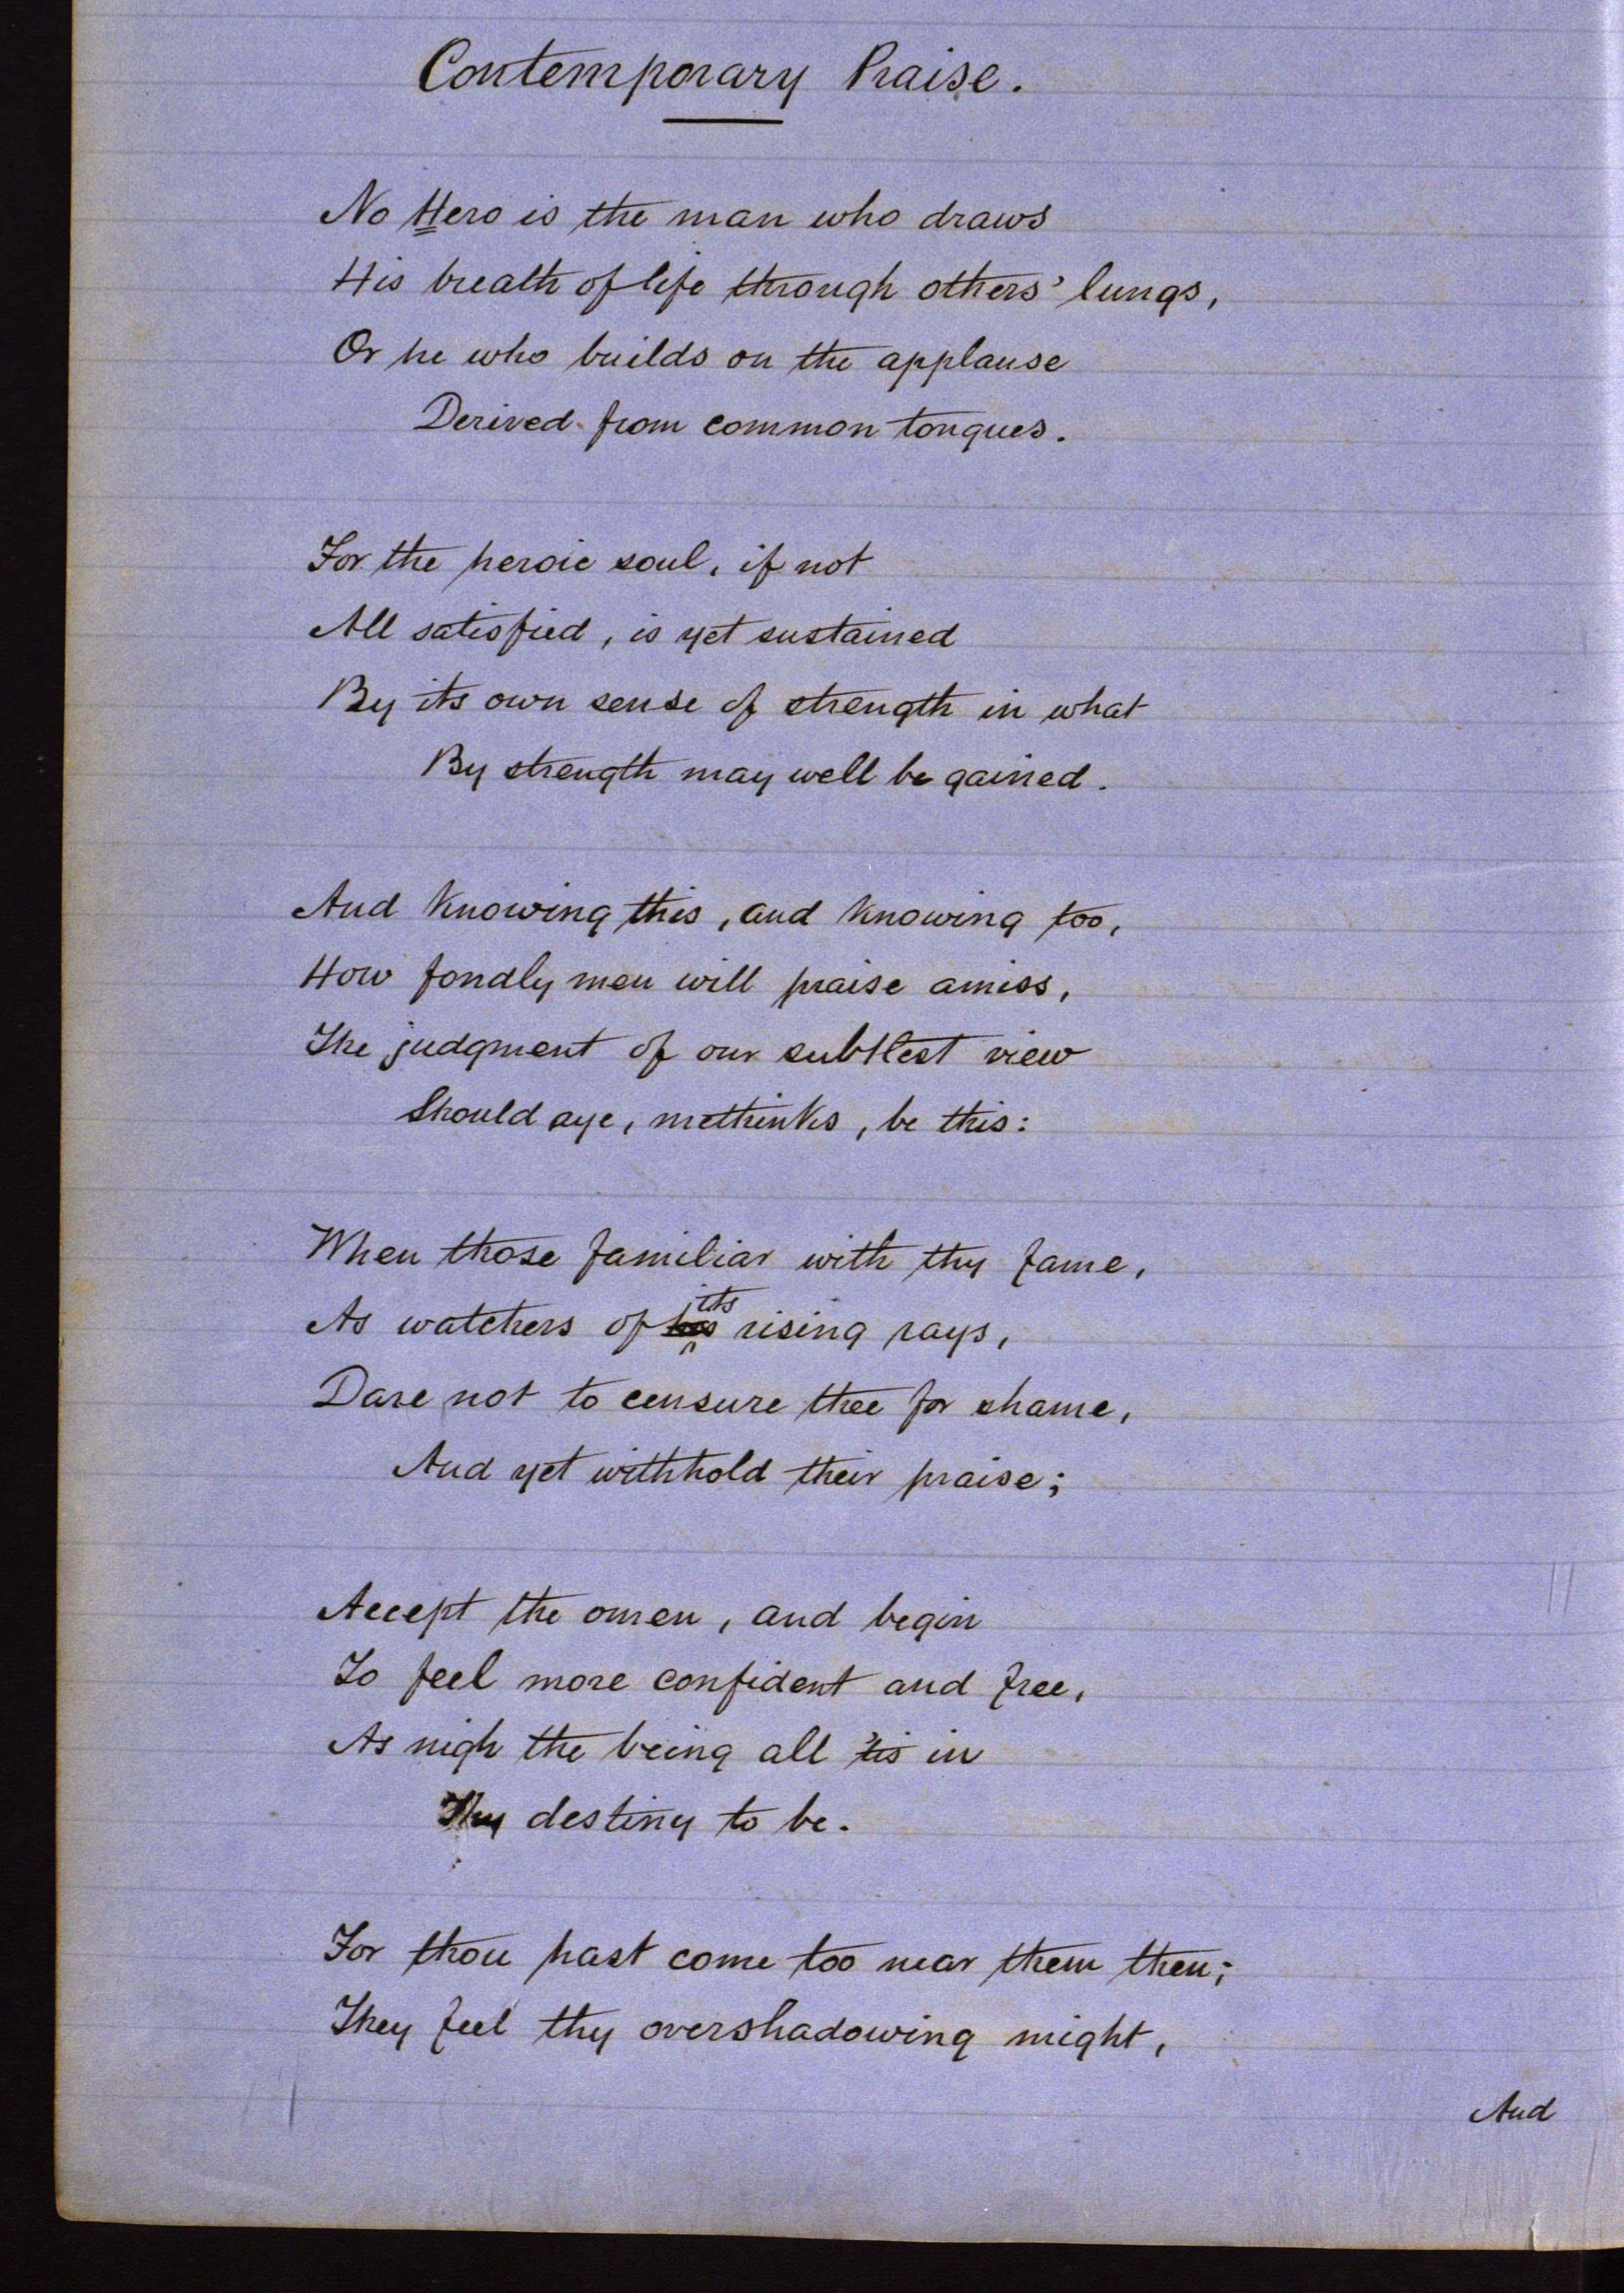 Contemporary Praise.
No Hero is the man who draws
His breath of life through others' lungs,
Or he who builds on the applause
Derived from common tongues.
For the heroic soul, if not
All satisfied, is yet sustained
By its own sense of strength in what
By strength may well be gained.
And knowing this, and knowing too,
How fondly men will praise amiss,
The judgment of our subtlest view
Should aye, methinks, be this:
When those familiar with thy fame,
As watchers of its rising rays,
Dare not to censure thee for shame,
And yet withhold their praise;
Accept the omen, and begin
To feel more confident and free,
As nigh the being all 'tis in
Thy destiny to be.
For thou hast come too near them then;
They feel thy overshadowing might,
And